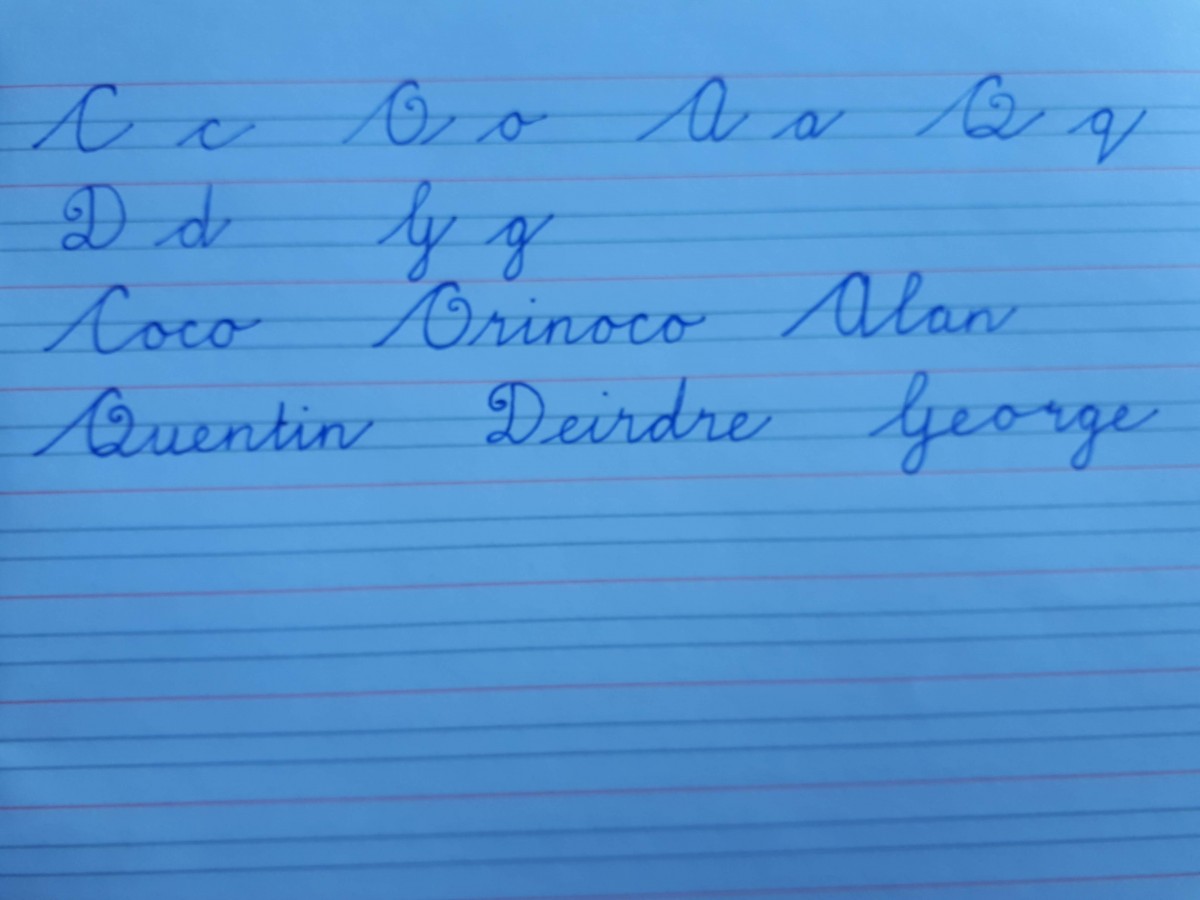 C c O o A a Q q
D d G g
Coco Orinoco Alan
Quentin Deirdre George